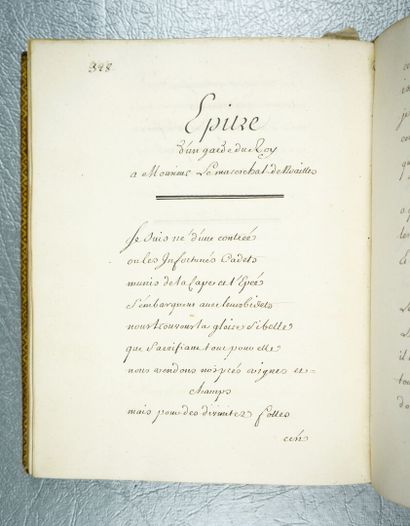 328
Epitre
d'un garde du Roy
a Monsieur Le marechal de Noailles
Je Suis né d'une contrée
ou les Infortunés Cadets
munis de la Cape et l'Epée
S'embarquent avec leurs bidets
nous trouvons la gloire Si belle
que Sacrifiant tout pour elle
nous vendons nos prés vignes et
champs
mais pour des divinitez folles